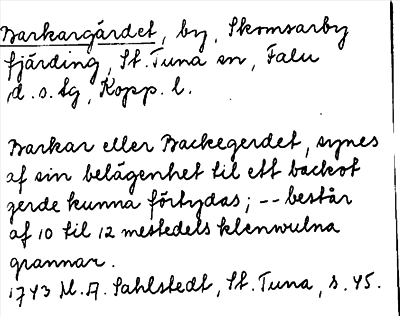 Barkargärdet, by, Skomsarby
fjärding, St. Tuna sn, Falu
d.s. tg, Kopp. l.
Barkar eller Backegerdet, synes
af sin belägenhet til ett backot
gerde kunna förtydas; -- består
af 10 til 12 mestedels klenwulna
grannar.
1743 M. A. Sahlstedt, St. Tuna, s. 45.